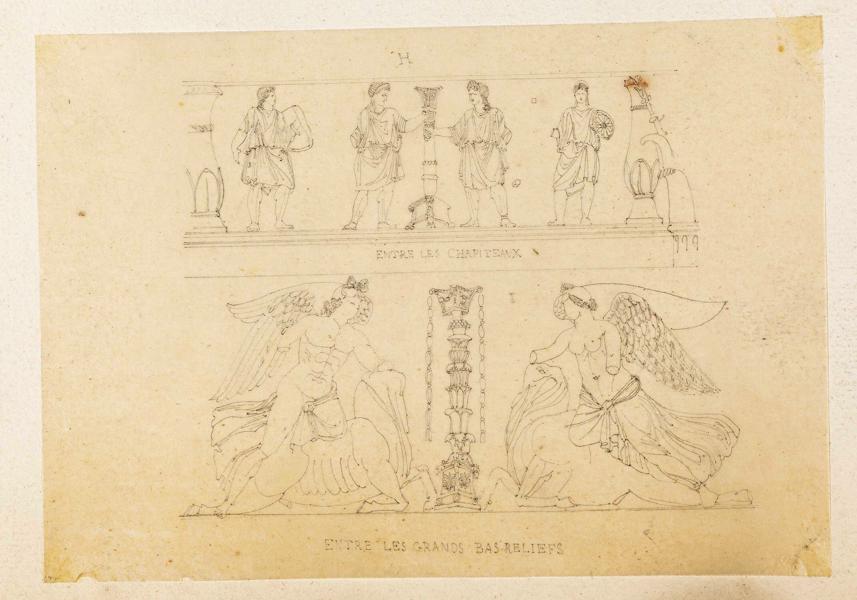 H
ENTRE LES CHAPITEAUX
ENTRE LES GRANDS BAS-RELIEFS